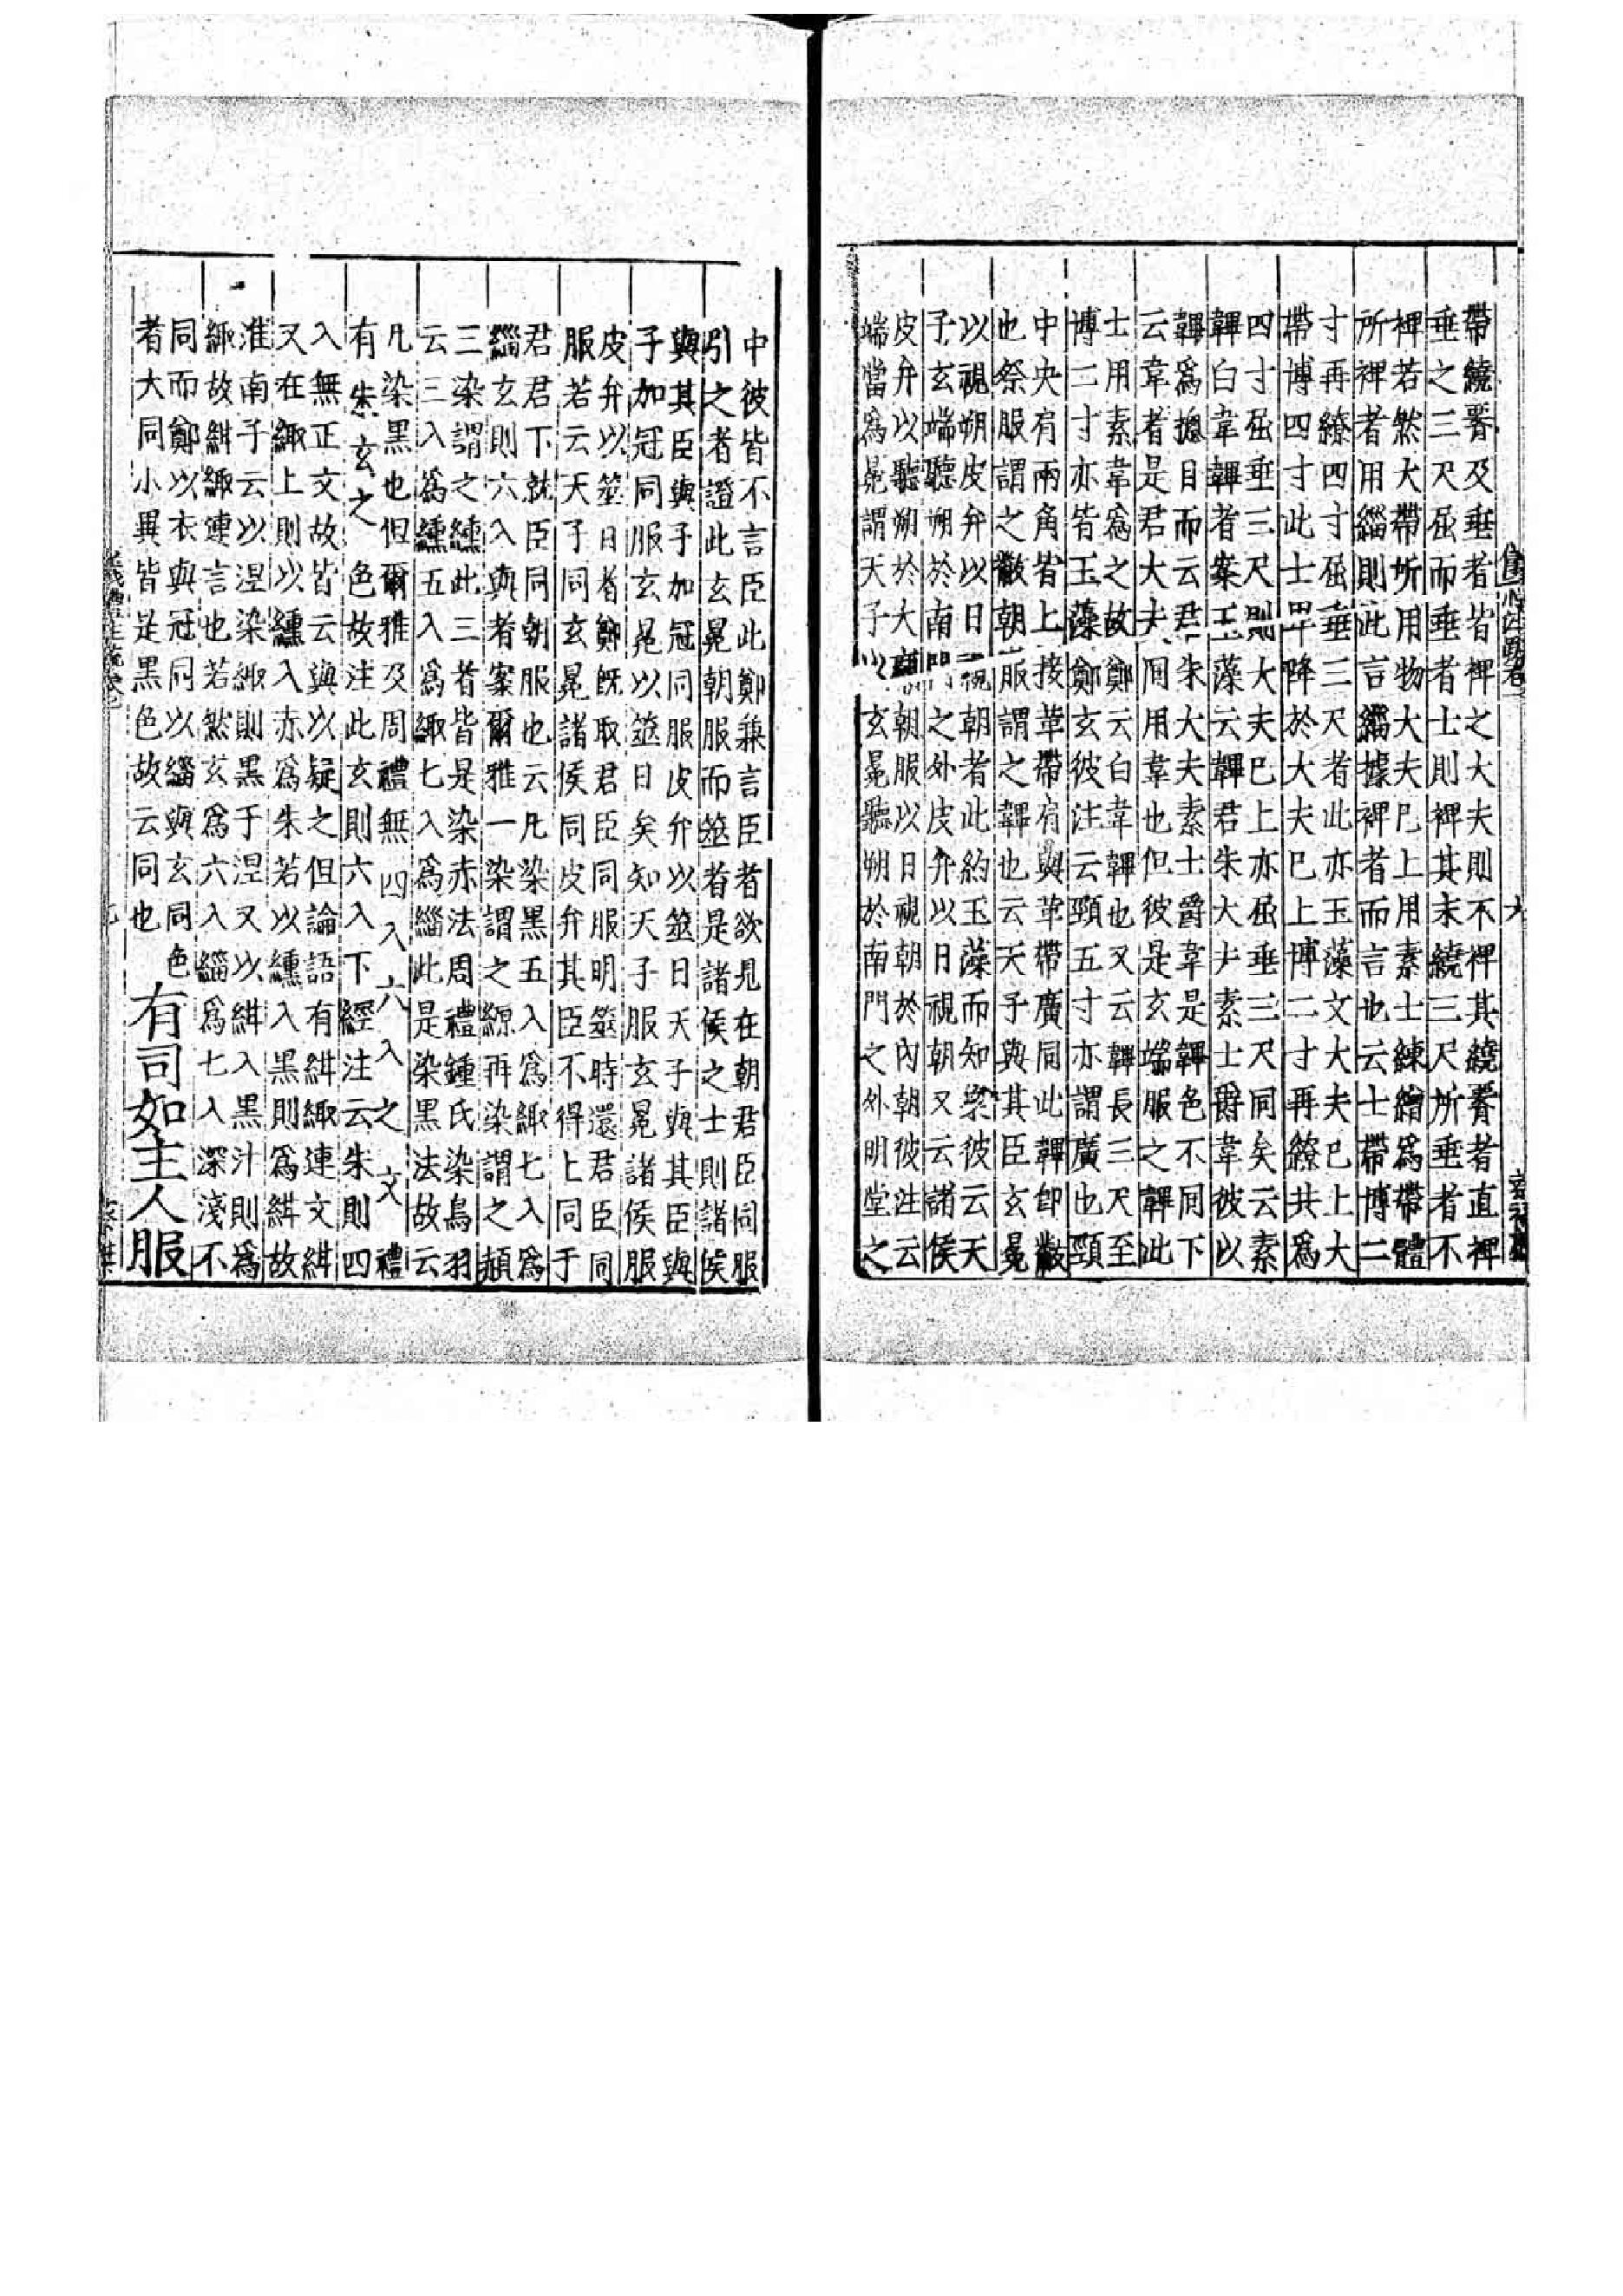 帶繞䯩及垂者皆裨之大夫則不裨其繞䯩者直裨
垂之三尺屈而垂者士則裨其末繞三尺所垂者不
裨若然大帶所用物大夫已上用素士練繒爲帶體
所裨者用緇則此言緇據裨者而言也云士帶博二
寸再繚四寸屈垂三尺者此亦玉藻文大夫已上大
帶博四寸此士卑降於大夫已上博二寸再繚共爲
四寸屈垂三尺則大夫已上亦屈垂三尺同矣云素
韠白韋韠者案玉藻云韠君朱大夫素士爵韋彼以
韠爲揔目而云君朱大夫素士爵韋是韠色不同下
云韋者是君大夫同用韋也但彼是玄端服之韠此
士用素韋爲之故鄭云白韋韠也又云韠長三尺至
博二寸亦皆玉藻鄭玄彼注云頸五寸亦謂廣也頸
中央肩兩角皆上接革帶肩與革帶廣同此韠即黻
也祭服謂之黻朝服謂之韠也云天子與其臣玄冕
以視朔皮弁以日視朝者此約玉藻而知案彼云天
子玄端聽朔於南門之外皮弁以日視朝又云諸侯
皮弁以聽朔於大廟朝服以日視朝於內朝彼注云
端當爲冕謂天子以玄冕聽朔於南門之外明堂之
中彼皆不言臣此鄭兼言臣者欲見在朝君臣同服
引之者證此玄冕朝服而筮者是諸侯之士則諸侯
與其臣與子加冠同服皮弁以筮日天子與其臣與
子加冠同服玄冕以筮日矣知天子服玄冕諸侯服
皮弁以筮日者鄭旣取君臣同服明筮時還君臣同
服若云天子同玄冕諸侯同皮弁其臣不得上同于
君君下就臣同朝服也云凡染黑五入爲緅七入爲
緇玄則六入與者案爾雅一染謂之縓再染謂之赬
三染謂之纁此三者皆是染赤法周禮鍾氏染鳥羽
云三入爲纁五入爲緅七入爲緇此是染黑法故云
凡染黑也但爾雅及周禮無四入六入之文禮
有朱玄之色故注此玄則六入下經注云朱則四
入無正文故皆云與以疑之但論語有紺緅連文紺
又在緅上則以纁入赤爲朱若以纁入黑則爲紺故
淮南子云以涅染緅則黑于涅又以紺入黑汁則爲
緅故紺緅連言也若然玄爲六入緇爲七入深淺不
同而鄭以衣與冠同以緇與玄同色
者大同小異皆是黑色故云同也
有司如主人服